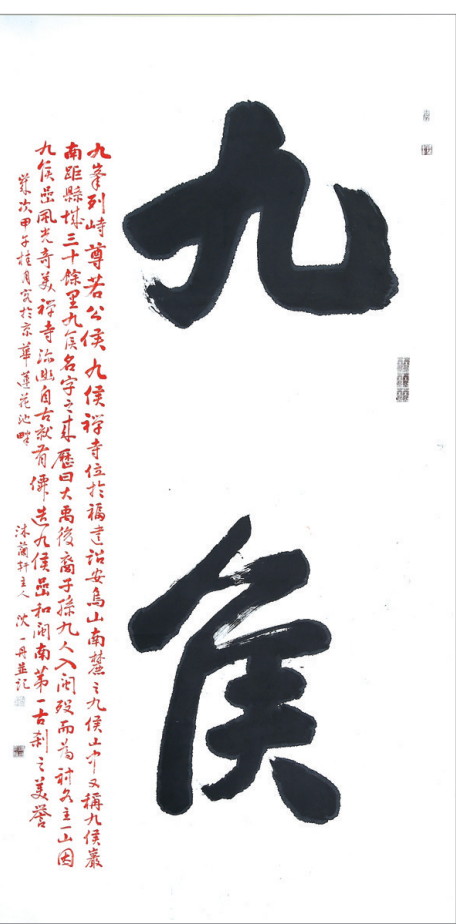 九侯
九峯列峙尊若公侯九侯禪寺位於福建詔安烏山南麓之九侯山中又稱九侯巖
南距縣城三十餘里九侯名字之來歷曰大禹後裔子孫九人入閩歿而為神各主一山因
九侯嵒風光奇美禪寺深幽自古就有僊造九侯嵒和閩南第一古刹之美譽
歲次甲午桂月寫於京華蓮花池畔
沐蘭軒主人沈一丹並記